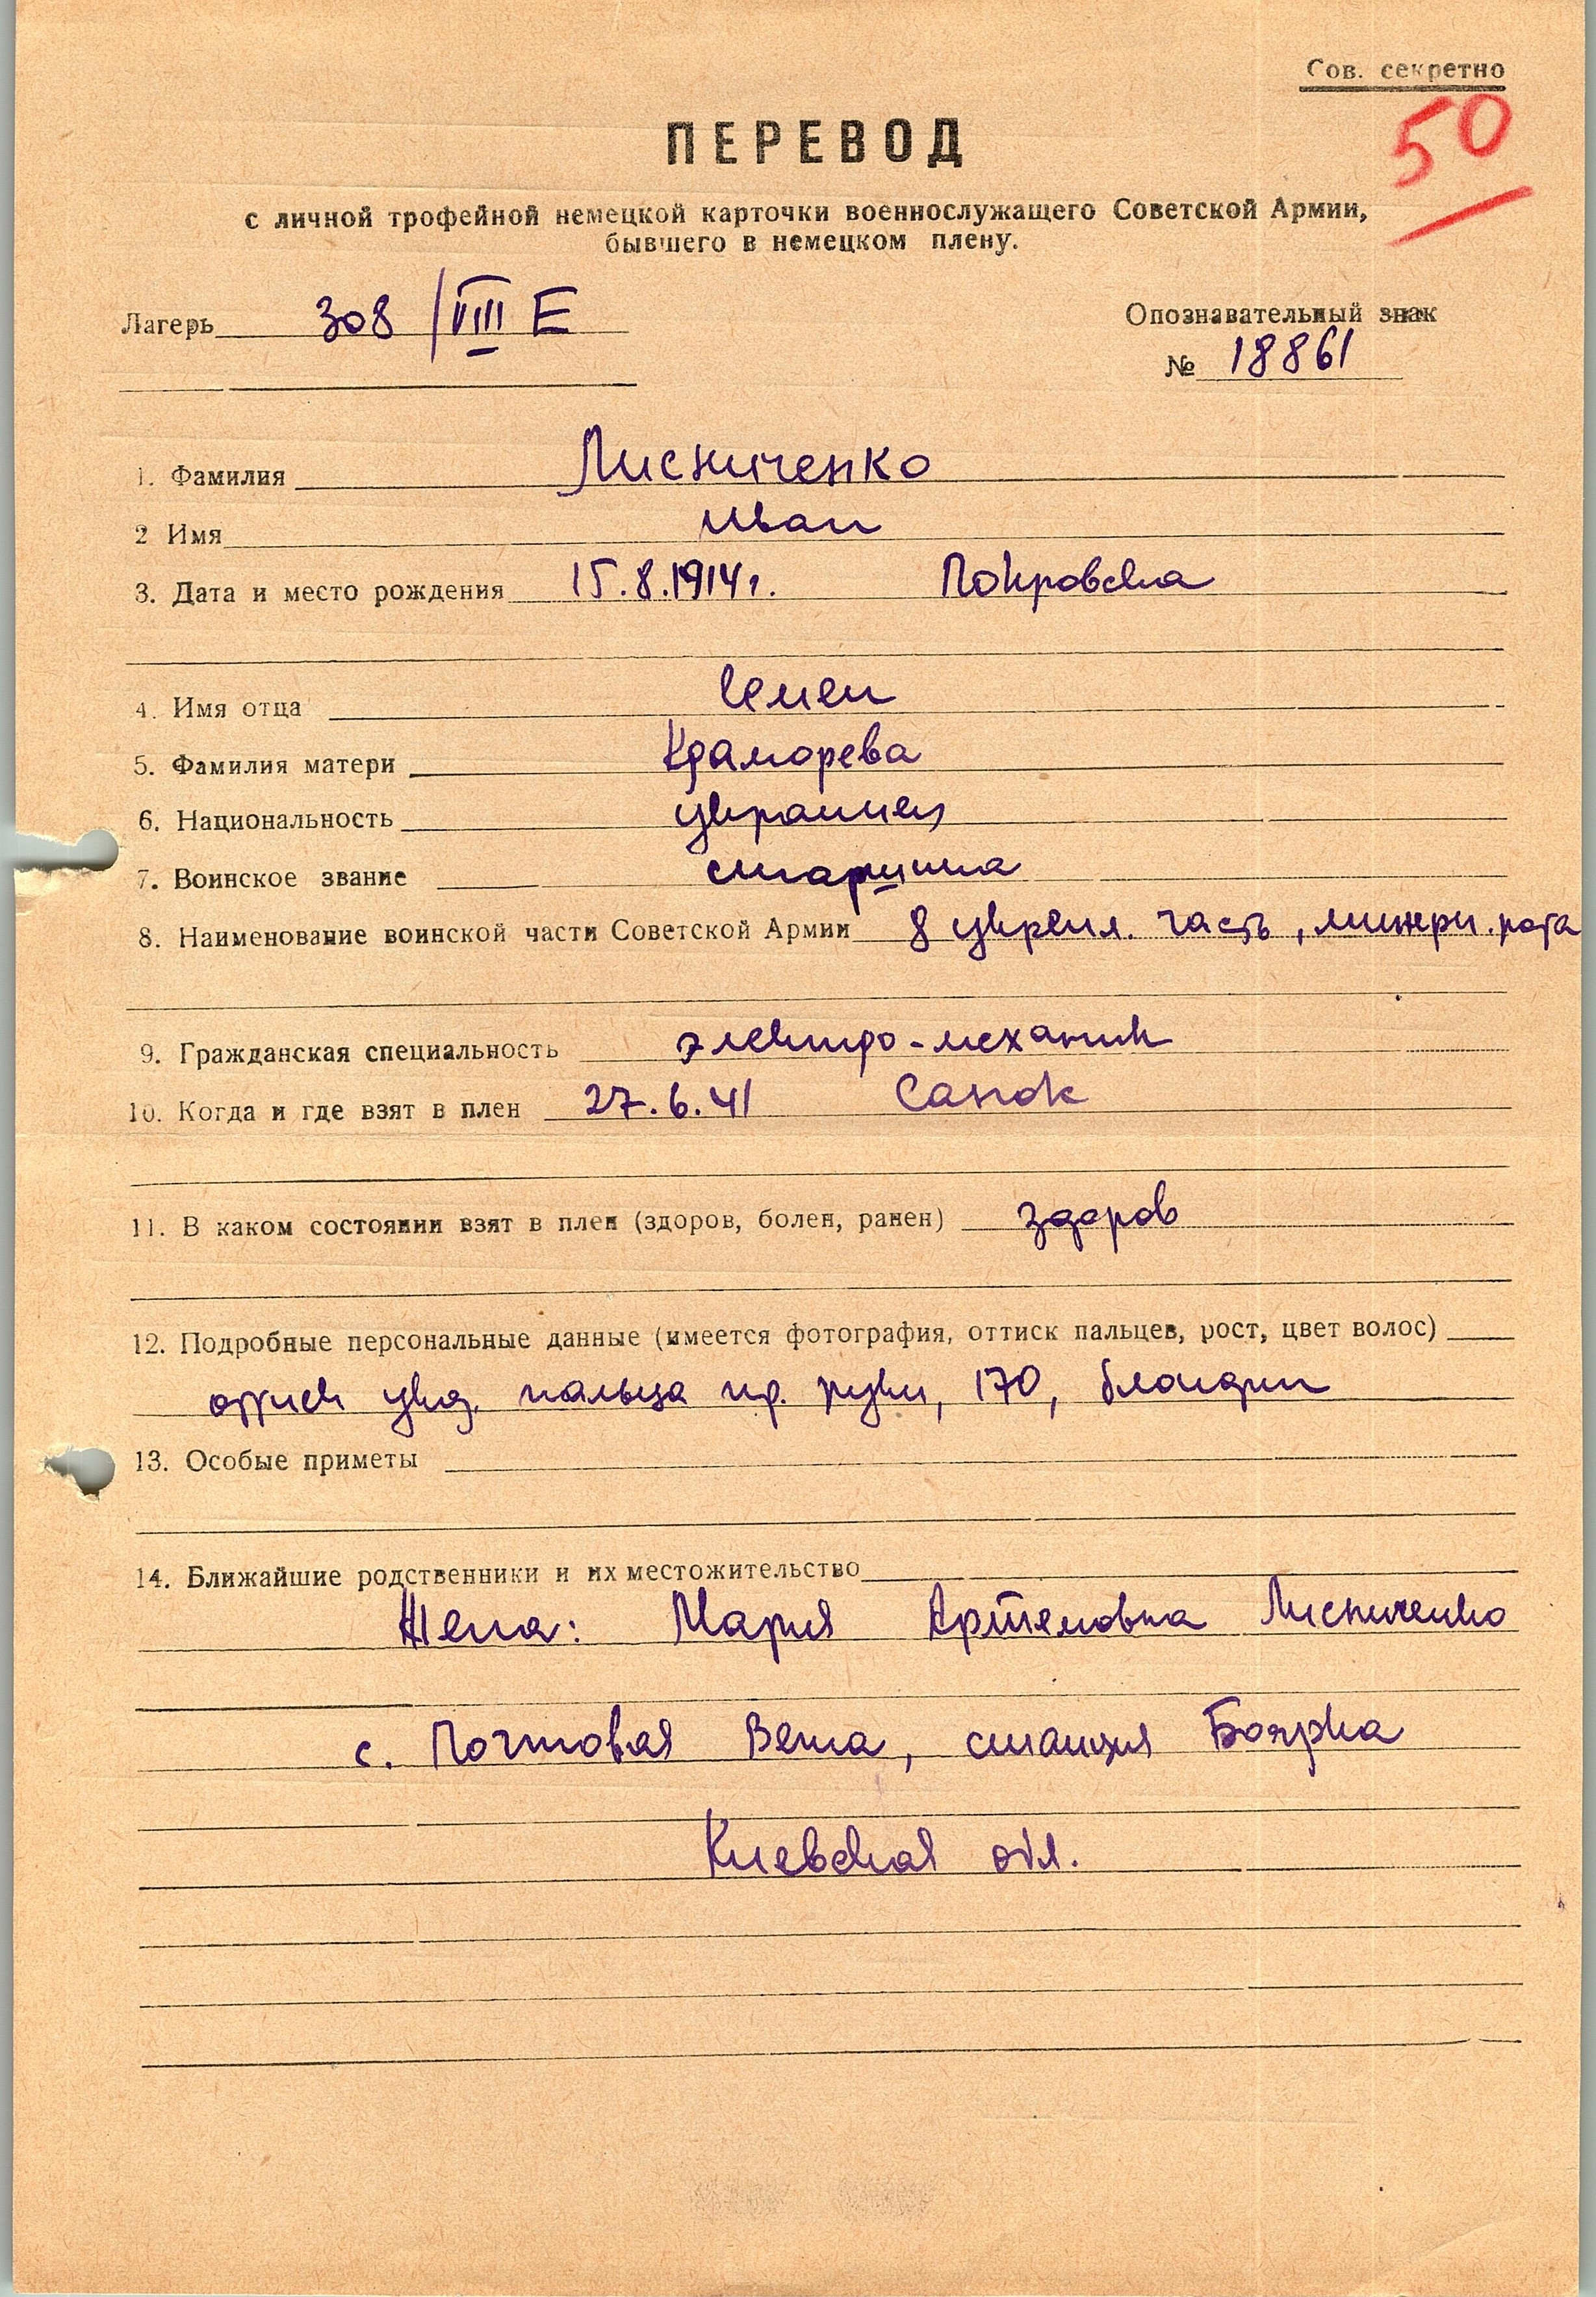 Сов. секретно
50
ПЕРЕВОД
с личной трофейной немецкой карточки военнослужащего Советской Армии,
бывшего в немецком плену.
Лагерь 308 / VIII E
Опознавательный знак
№ 18861
1. Фамилия Лисниченко
2 Имя Иван
3. Дата и место рождения 15.8.1914г. Покровска
4. Имя отца Семен
5. Фамилия матери Краморева
6. Национальность украинец
7. Воинское звание старшина
8. Наименование воинской части Советской Армии 8 укрепл. часть, инжен. рота
9. Гражданская специальность электро-механик
10. Когда и где взят в плен 27.6.41 Санок
11. В каком состоянии взят в плен (здоров, болен, ранен) здоров
12. Подробные персональные данные (имеется фотография, оттиск пальцев, рост, цвет волос)
оттиск указ. пальца пр. руки, 170, блондин
13. Особые приметы
14. Ближайшие родственники и их местожительство
Жена: Мария Артемовна Лисниченко
с. Почтовая Вета, станция Боярка
Киевская обл.